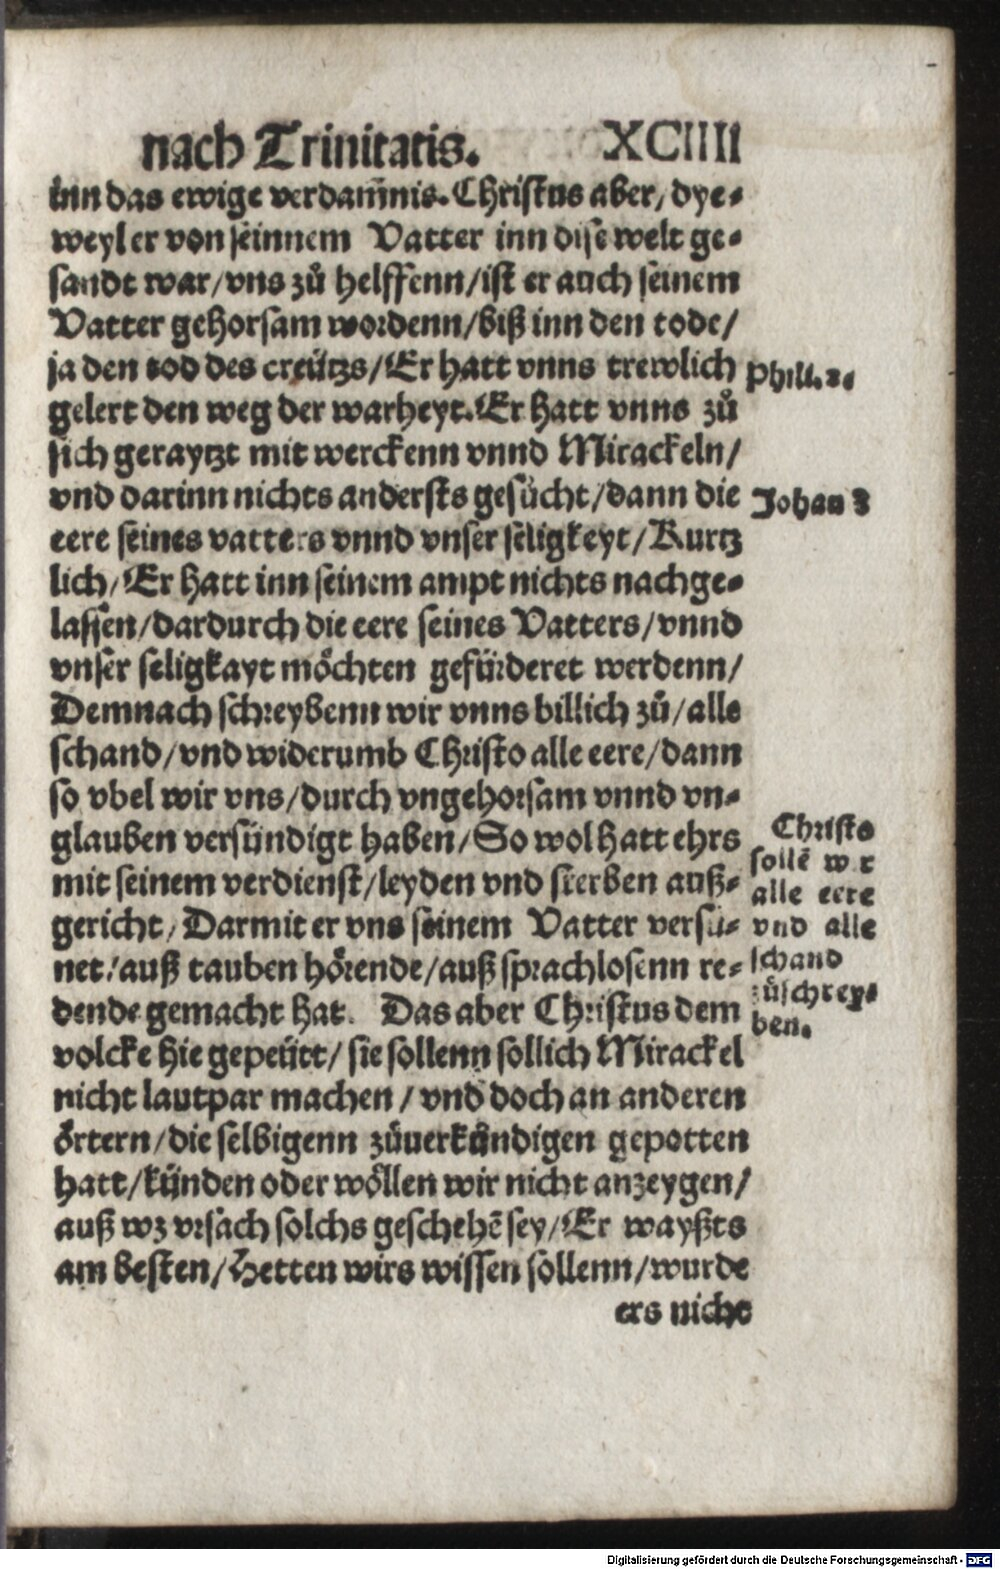 nach Trinitatis. XCIIII
inn das ewige verdam̃nis. Christus aber, dye-
weyl er von seinnem Vatter inn dise welt ge-
sandt war/vns zů helffenn/ist er auch seinem
Vatter gehorsam wordenn/biß inn den tode/
ja den tod des creützs/Er hatt vnns trewlich
Phill. 2.
gelert den weg der warheyt. Er hatt vnns zů
sich geraytzt mit werckenn vnnd Mirackeln/
vnd darinn nichts andersts gesücht/dann die
Johan 8
eere seines vatters vnnd vnser seligkeyt/Kurtz
lich/Er hatt inn seinem ampt nichts nachge-
lassen/dardurch die eere seines Vatters/vnnd
vnser seligkayt möchten gefürderet werdenn/
Demnach schreybenn wir vnns billich zů/alle
schand/vnd widerumb Christo alle eere/dann
so vbel wir vns/durch vngehorsam vnnd vn-
glauben versündigt haben/So wol hatt ehrs
mit seinem verdienst/leyden vnd sterben auß-
gericht/Darmit er vns seinem Vatter versü-
net/auß tauben hörende/auß sprachlosenn re-
dende gemacht hat. Das aber Christus dem
Christo
sollẽ wir
alle eere
vnd alle
schand
zůschrey-
ben.
volcke hie gepeütt/sie sollenn sollich Mirackel
nicht lautpar machen/vnd doch an anderen
örtern/die selbigenn zůuerkündigen gepotten
hatt/künden oder wöllen wir nicht anzeygen/
auß wz vrsach solchs geschehẽ sey/Er wayßts
am besten/Hetten wirs wissen sollenn/wurde
ers nicht
Digitalisierung gefördert durch die Deutsche Forschungsgemeinschaft - DFG